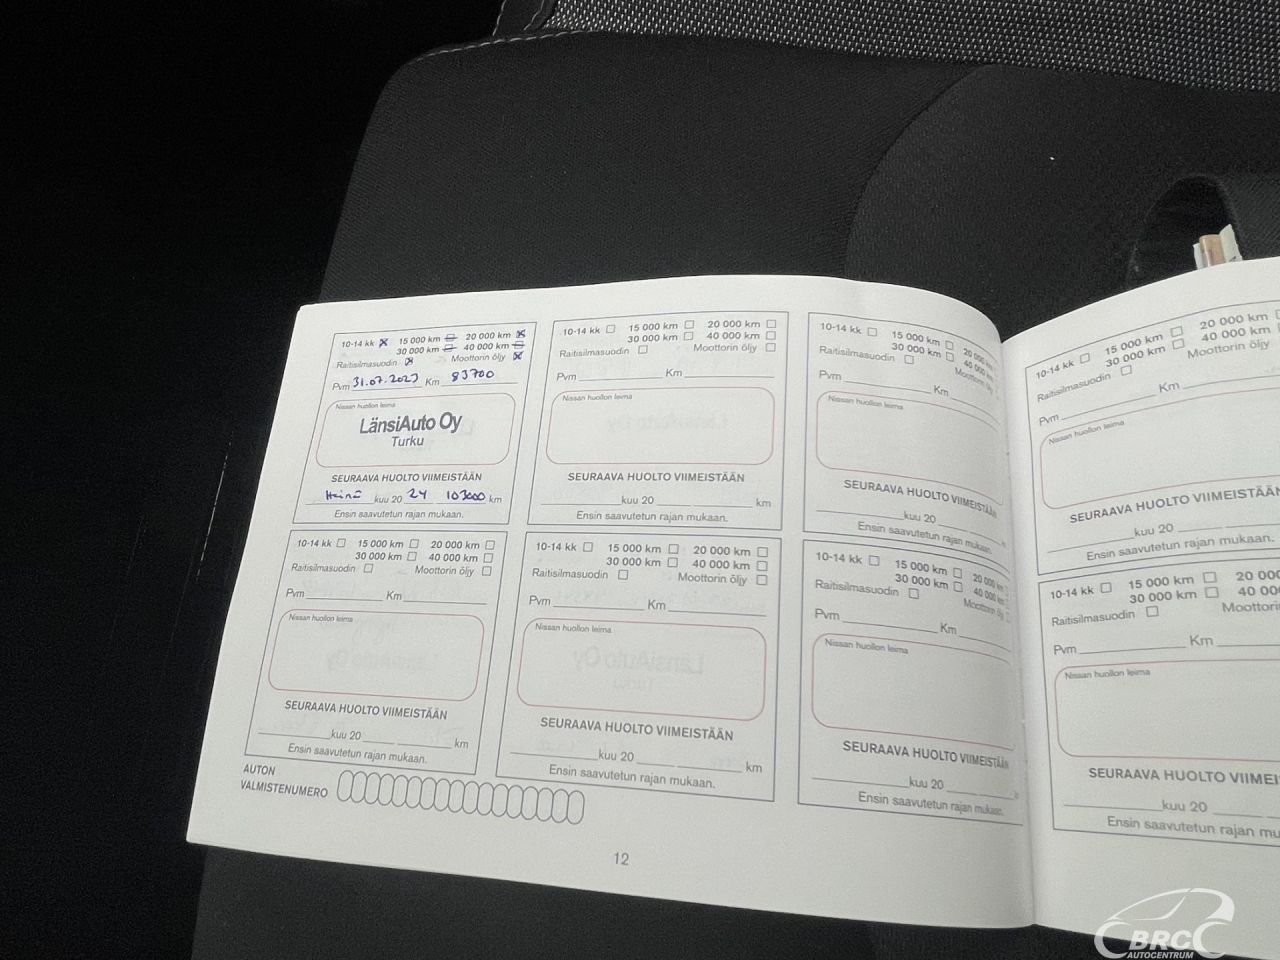 10-14 kk 15 000 km 20 000 km
30 000 km 40 000 km
Raitisilmasuodin Moottorin öljy
Pvm 31.07.2023 Km 83700
Nissan huollon leima
LänsiAuto Oy
Turku
SEURAAVA HUOLTO VIIMEISTÄÄN
Heinä kuu 20 24 103000 km
Ensin saavutetun rajan mukaan.
10-14 kk 15 000 km 20 000 km
30 000 km 40 000 km
Raitisilmasuodin Moottorin öljy
Pvm Km
Nissan huollon leima
SEURAAVA HUOLTO VIIMEISTÄÄN
kuu 20 km
Ensin saavutetun rajan mukaan.
10-14 kk 15 000 km 20 000 km
30 000 km 40 000 km
Raitisilmasuodin Moottorin öljy
Pvm Km
Nissan huollon leima
SEURAAVA HUOLTO VIIMEISTÄÄN
kuu 20
Ensin saavutetun rajan mukaan.
10-14 kk 15 000 km 20 000 km
30 000 km 40 000 km
Raitisilmasuodin Moottorin öljy
Pvm Km
Nissan huollon leima
SEURAAVA HUOLTO VIIMEISTÄÄN
kuu 20 km
Ensin saavutetun rajan mukaan.
10-14 kk 15 000 km 20 000 km
30 000 km 40 000 km
Raitisilmasuodin Moottorin öljy
Pvm Km
Nissan huollon leima
SEURAAVA HUOLTO VIIMEISTÄÄN
kuu 20 km
Ensin saavutetun rajan mukaan.
10-14 kk 15 000 km 20 000 km
30 000 km 40 000 km
Raitisilmasuodin Moottorin öljy
Pvm Km
Nissan huollon leima
SEURAAVA HUOLTO VIIMEISTÄÄN
kuu 20
Ensin saavutetun rajan mukaan.
AUTON
VALMISTENUMERO
12
10-14 kk 15 000 km 20 000 km
30 000 km 40 000 km
Raitisilmasuodin Moottorin öljy
Pvm Km
Nissan huollon leima
SEURAAVA HUOLTO VIIMEISTÄÄN
kuu 20
Ensin saavutetun rajan mukaan.
10-14 kk 15 000 km 20 000
30 000 km 40 00
Raitisilmasuodin Moottorin
Pvm Km
Nissan huollon leima
SEURAAVA HUOLTO VIIMEI
kuu 20
Ensin saavutetun rajan mu
BRC
AUTOCENTRUM